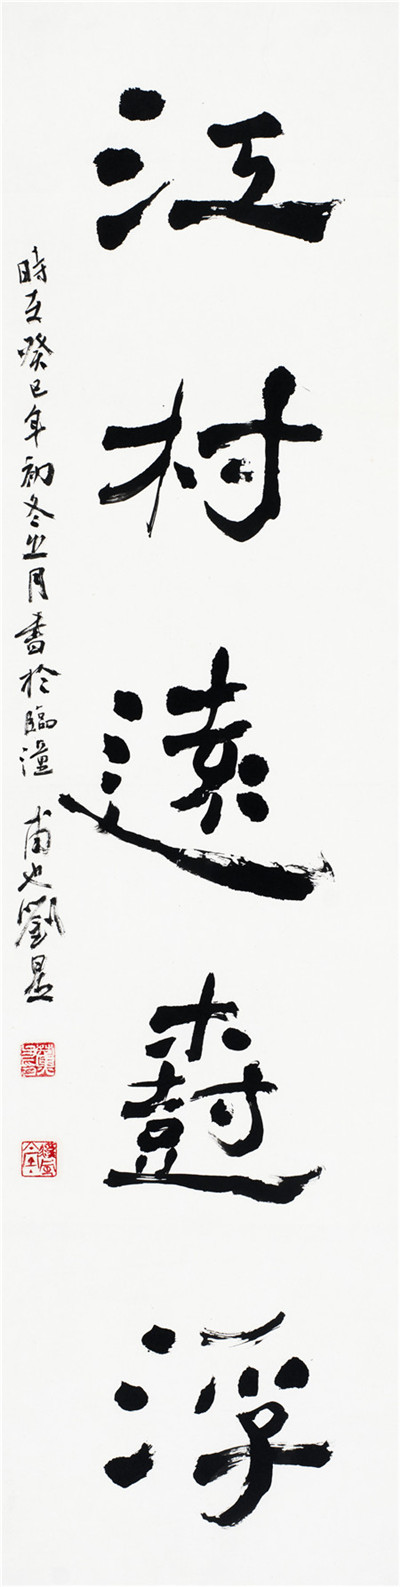 江村遠樹浮
時在癸巳年初冬之月書於臨潼 甫也劉